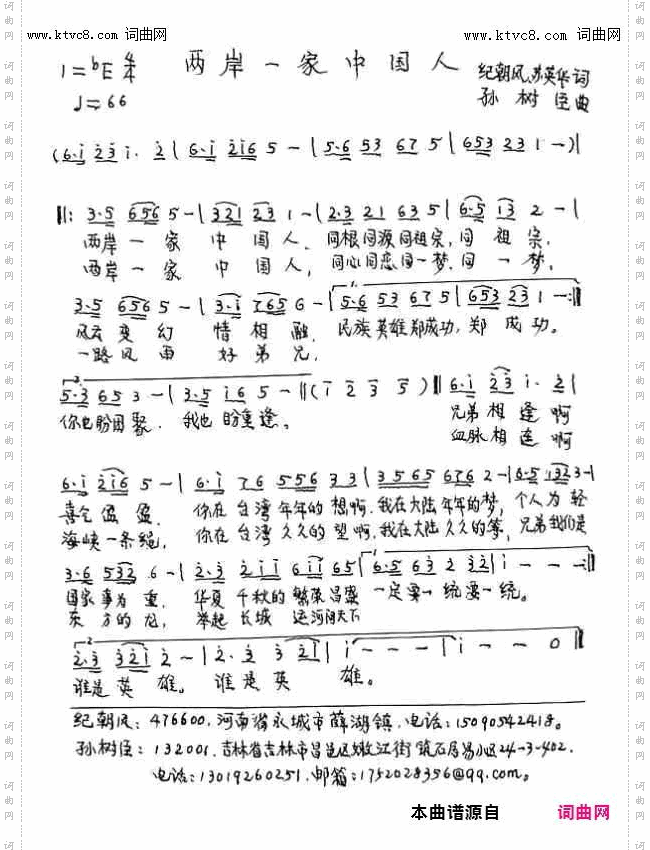 www.ktvc8.com 词曲网 www.ktvc8.com 词曲网
1=bE 4/4 两岸一家中国人 纪朝风、苏英华词
♩=66 孙树臣曲
(6·i 2 3 i· 2 | 6·i 2i6 5 - | 5·6 53 67 5 | 653 231 1 -)|
‖: 3·5 656 5 - | 321 23 1 - | 2·3 21 635 | 6·5 13 2 - |
两岸一家中国人、同根同源同祖宗,同祖宗,
两岸一家中国人,同心同恋同一梦、同一梦,
3·5 656 5 - | 3·i 765 6 - | 5·6 53 67 5 | 653 231 1 - :‖
风云变幻情相融,民族英雄郑成功,郑成功。
一路风雨好弟兄,
5·3 65 3 - | 3·5 i6 5 - ‖ (i 2 3 5) ‖ 6·i 23 i· 2 |
你也盼团聚,我也盼重逢。兄弟相逢啊
血脉相连啊
6·i 2i6 5 - | 6·i 76 556 33 | 3565 676 2 - | 6·5 132 3 - |
喜气盈盈,你在台湾年年的想啊,我在大陆年年的梦,个人为轻
海峡一条绳,你在台湾久久的望啊,我在大陆久久的等,兄弟我们是
3·6 532 6 - | 2·3 2ii 6ii 65 | 6·5 63 2 32 | i - - - :‖
国家事为重,华夏千秋的繁荣昌盛一定要一统要一统。
东方的龙,举起长城运河闹天下
2·3 32i 2 - | 2·2 3 2i | i - - - | i - - 0 ‖
谁是英雄。谁是英雄。
纪朝风:476600,河南省永城市薛湖镇,电话:15090542418。
孙树臣:132001,吉林省吉林市昌邑区嫩江街筑石居易小区24-3-402.
电话:13019260251,邮箱:1752028356@qq.com。
本曲谱源自 词曲网